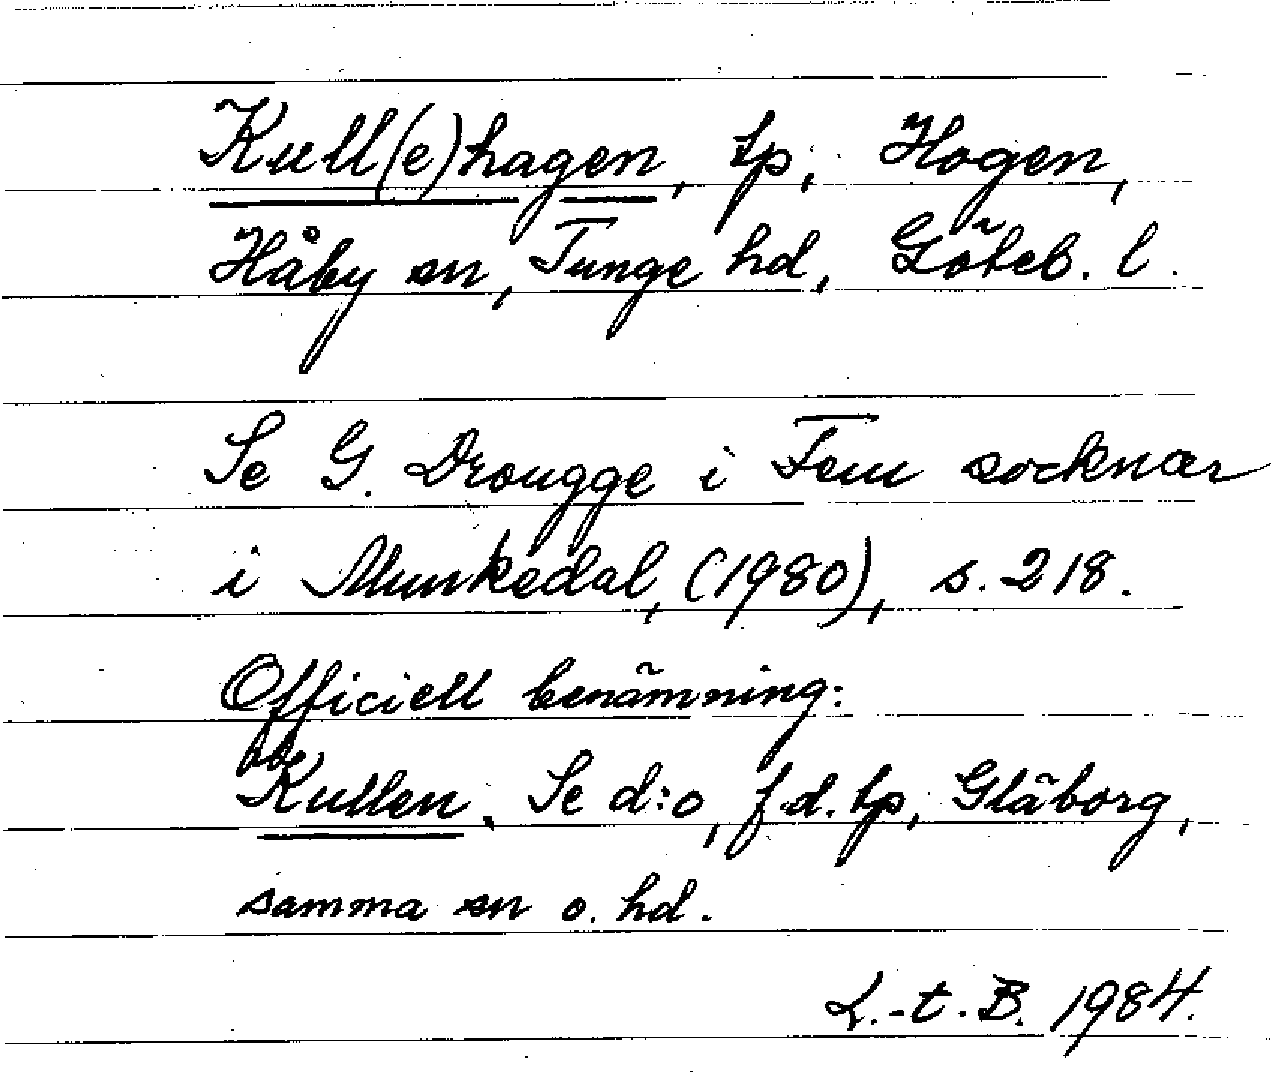 Kull(e)hagen, tp, Hogen,
Håby sn, Tunge hd, Göteb. l.
Se G. Drougge i Fem socknar
i Munkedal, (1980), s. 218.
Officiell benämning:
Kullen. Se d:o, f.d. tp, Gläborg,
samma sn o. hd.
L.-t. B. 1984.